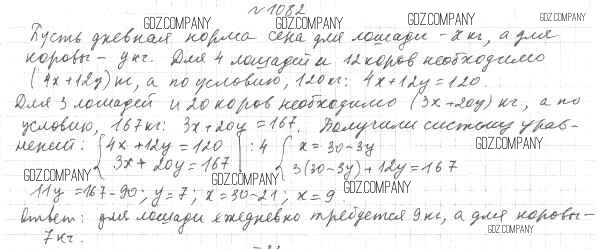 №1082
Пусть дневная норма сена для лошади - x кг, а для
коровы - y кг. Для 4 лошадей и 12 коров необходимо
(4x+12y) кг, а по условию, 120 кг: 4x+12y=120.
Для 3 лошадей и 20 коров необходимо (3x+20y) кг, а по
условию, 167 кг: 3x+20y=167. Получили систему урав-
нений: { 4x+12y=120 | :4 { x=30-3y
3x+20y=167 3(30-3y)+12y=167
11y=167-90; y=7; x=30-21; x=9.
Ответ: для лошади ежедневно требуется 9 кг, а для коровы -
7 кг.
GDZ.COMPANY
GDZ.COMPANY
GDZ.COMPANY
GDZ.COMPANY
GDZ.COMPANY
GDZ.COMPANY
GDZ.COMPANY
GDZ.COMPANY
GDZ.COMPANY
GDZ.COMPANY